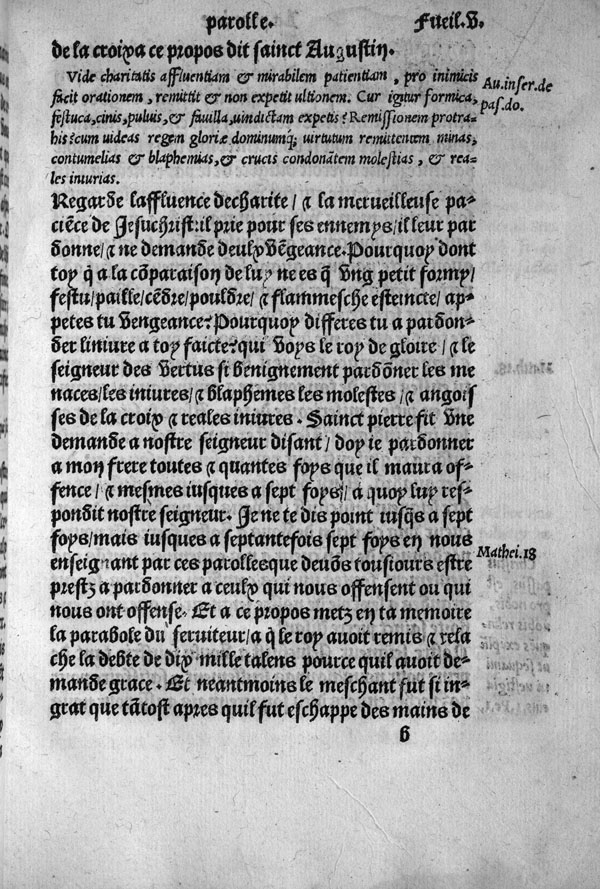 parolle. Fueil. V.
de la croixa ce propos dit sainct Augustin.
Vide charitatis affluentiam & mirabilem patientiam, pro inimicis
facit orationem, remittit & non expetit ultionem. Cur igitur formica,
festuca, cinis, puluis, & fauilla, uindictam expetis? Remissionem protra-
his? cum uideas regem gloriæ dominumq; uirtutum remittentem minas,
contumelias & blaphemias, & crucis condonãtem molestias, & rea-
les iniurias.
Au. in ser. de
pas. do.
Regarde laffluence decharite/ & la merueilleuse pa-
ciẽce de Jesuchrist: il prie pour ses ennemys/ il leur par
donne/ & ne demande deulx vẽgeance. Pourquoy dont
toy q̃ a la cõparaison de luy ne es q̃ vng petit formy/
festu/ paille/ cẽdre/ pouldre/ & flammesche esteincte/ ap-
petes tu vengeance? Pourquoy differes tu a pardon-
der liniure a toy faicte? qui voys le roy de gloire/ & le
seigneur des vertus si benignement pardõner les me
naces/ les iniures/ & blaphemes les molestes/ & angois
ses de la croix & reales iniures. Sainct pierre fit vne
demande a nostre seigneur disant/ doy ie pardonner
a mon frere toutes & quantes foys que il maura of-
fence/ & mesmes iusques a sept foys/ a quoy luy res-
pondit nostre seigneur. Je ne te dis point iusq̃s a sept
foys/ mais iusques a septantefois sept foys en nous
enseignant par ces parollesque deuõs tousiours estre
prestz a pardonner a ceulx qui nous offensent ou qui
nous ont offense. Et a ce propos metz en ta memoire
la parabole du seruiteur/ a q̃ le roy auoit remis & rela
che la debte de dix mille talens pource quil auoit de-
mande grace. Et neantmoins le meschant fut si in-
grat que tãtost apres quil fut eschappe des mains de
Mathei. 18
b